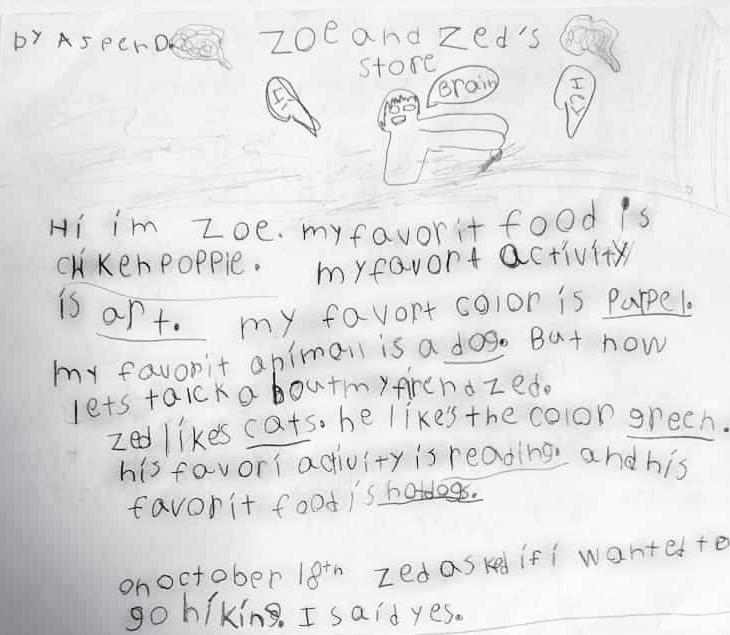 by Aspen D.
Zoe and Zed's
store
Brain
ICK
Hi im Zoe. my favorit food is
chiken poppie.  my favort activity
is art.  my favort color is purpel.
my favorit animall is a dog. But now
lets talck a bout my firend zed.
zed likes cats. he like's the color green.
his favori activity is reading. and his
favorit food is hotdogs.
on october 18th  zed asked if i wanted to
go hiking. I said yes.